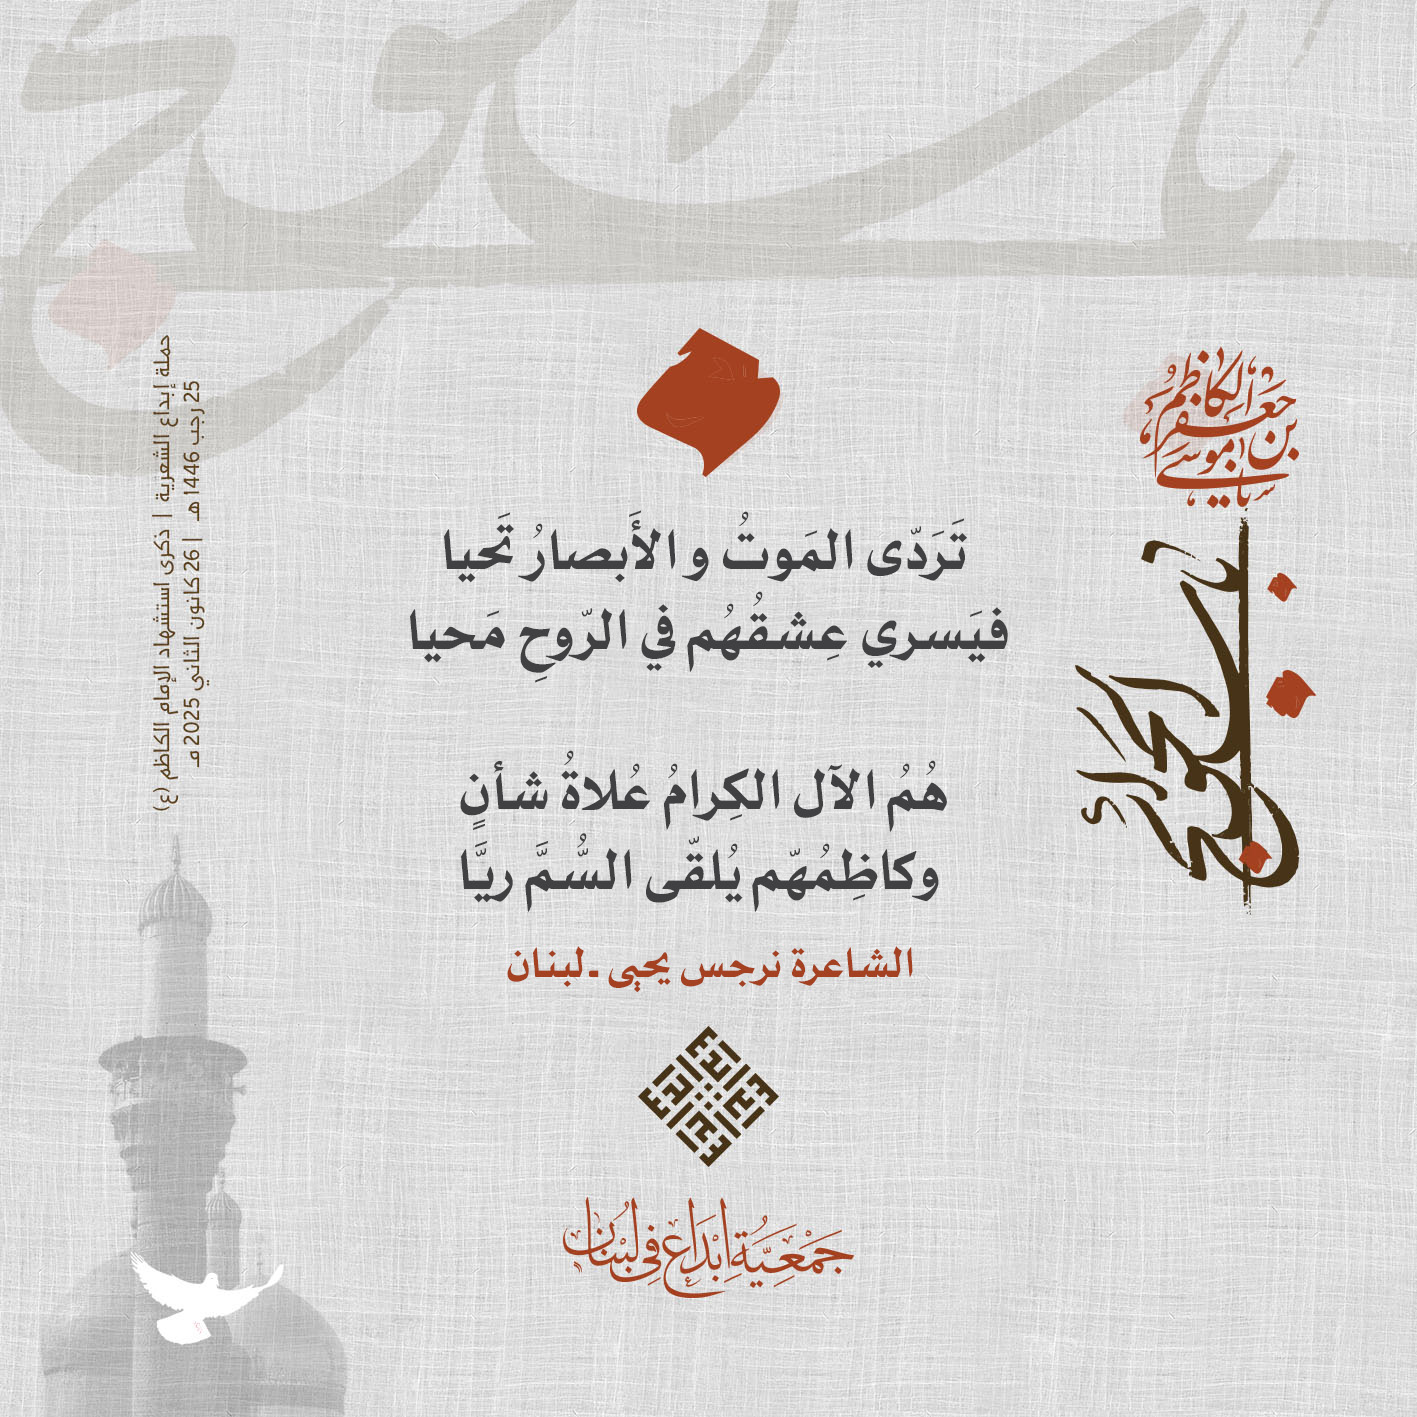 تَرَدّى المَوتُ و الأَبصارُ تَحيا
فيَسري عِشقُهُم في الرّوحِ مَحيا
هُمُ الآل الكِرامُ عُلاةُ شأنٍ
وكاظِمُهّم يُلقّى السُّمَّ ريَّا
الشاعرة نرجس يحيى ـ لبنان
جَمْعِيَّةُ إِبْدَاع فِي لُبْنَان
يا موسى
بن جعفر
الكاظم
باب الحوائج
حملة إبداع الشعرية | ذكرى استشهاد الإمام الكاظم (ع)
25 رجب 1446 هـ | 26 كانون الثاني 2025 مـ